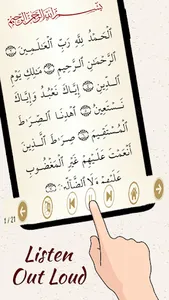 بِسْمِ اللَّهِ الرَّحْمَٰنِ الرَّحِيمِ
الْحَمْدُ لِلَّهِ رَبِّ الْعَالَمِينَ
الرَّحْمَٰنِ الرَّحِيمِ مَالِكِ يَوْمِ
الدِّينِ إِيَّاكَ نَعْبُدُ وَإِيَّاكَ
نَسْتَعِينُ اهْدِنَا الصِّرَاطَ
الْمُسْتَقِيمَ صِرَاطَ الَّذِينَ
أَنْعَمْتَ عَلَيْهِمْ غَيْرِ الْمَغْضُوبِ
عَلَيْهِمْ وَلَا الضَّالِّ
1 / 21
Listen
Out Loud